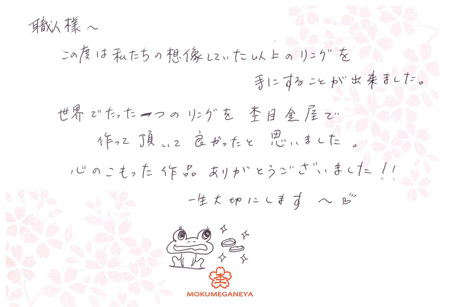 職人様～
この度は私たちの想像していた以上のリングを
手にすることが出来ました。
世界でたった一つのリングを杢目金屋で
作って頂いて良かったと思いました。
心のこもった作品ありがとうございました!!
一生大切にします～
MOKUMEGANEYA